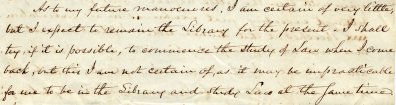 As to my future manoeuvres, I am certain of very little,
but I expect to remain the Library for the present - I shall
try, if it is possible, to commence the study of Law when I come
back, but this I am not certain of, as it may be impracticable
for me to be in the Library and study Law at the same time